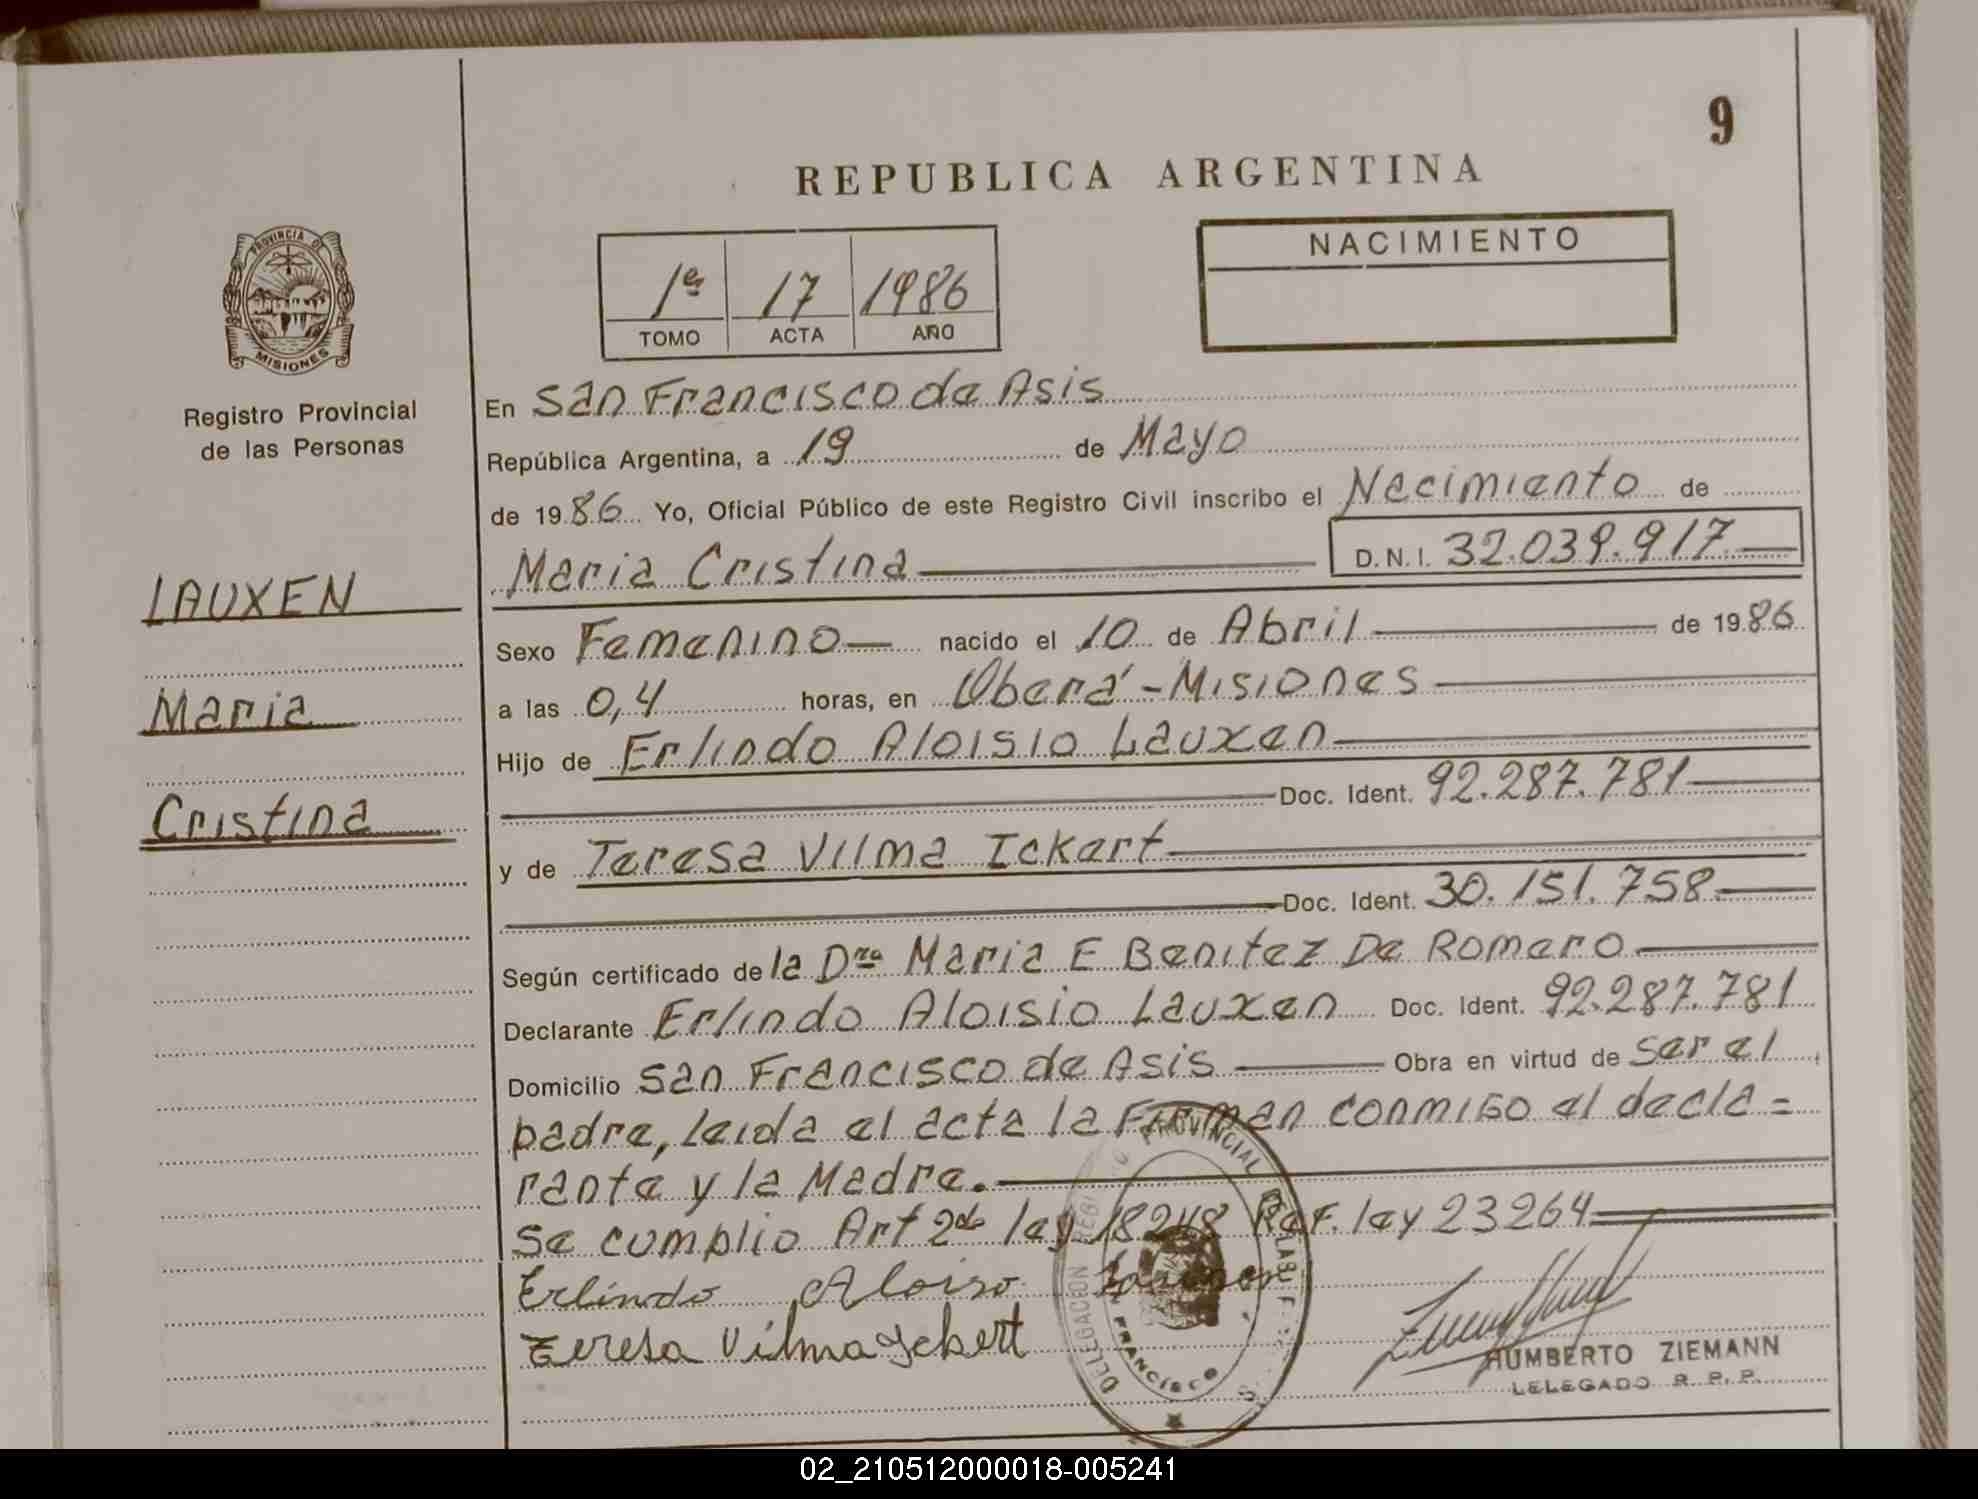 9
REPUBLICA ARGENTINA
PROVINCIA DE
MISIONES
Registro Provincial
de las Personas
1er 17 1986
TOMO ACTA AÑO
NACIMIENTO
LAUXEN
Maria
Cristina
En San Francisco de Asis
República Argentina, a 19 de Mayo
de 1986 Yo, Oficial Público de este Registro Civil inscribo el Nacimiento de
Maria Cristina D.N.I. 32.039.917
Sexo Femenino nacido el 10 de Abril de 1986
a las 0,4 horas, en Oberá - Misiones
Hijo de Erlindo Aloisio Lauxen
Doc. Ident. 92.287.781
y de Teresa Vilma Ickert
Doc. Ident. 30.151.758
Según certificado de la Dra Maria E Benitez De Romero
Declarante Erlindo Aloisio Lauxen Doc. Ident. 92.287.781
Domicilio San Francisco de Asis Obra en virtud de ser el
padre, leida el acta la Firman conmigo el decla=
rante y la Madre.
Se cumplio Art 2do ley 18248 Ref. ley 23264
Erlindo Aloiso Lauxen
Teresa Vilma Ickert
DELEGACION PROVINCIAL
FRANCISCO
HUMBERTO ZIEMANN
LELEGADO R. P. P.
02_210512000018-005241